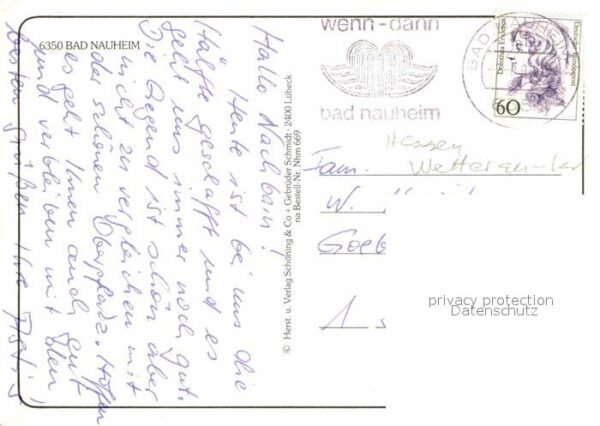 6350 BAD NAUHEIM
Hallo Nachbarin!
Heute ist bei uns die
Hälfte geschafft und es
geht uns immer noch gut.
Die Gegend ist schön aber
nicht zu vergleichen mit
der schönen Oberpfalz. Hoffen
es geht Ihnen auch gut
und verbleiben mit den
besten Grüßen Ihre
© Herst. u. Verlag Schöning & Co + Gebrüder Schmidt · 2400 Lübeck
na Bestell-Nr. Nhm 669
wenn-dann
bad nauheim
BAD NAUHEIM
60
Hessen
Fam. Wetterau-kr
W.
Goeb
privacy protection
Datenschutz